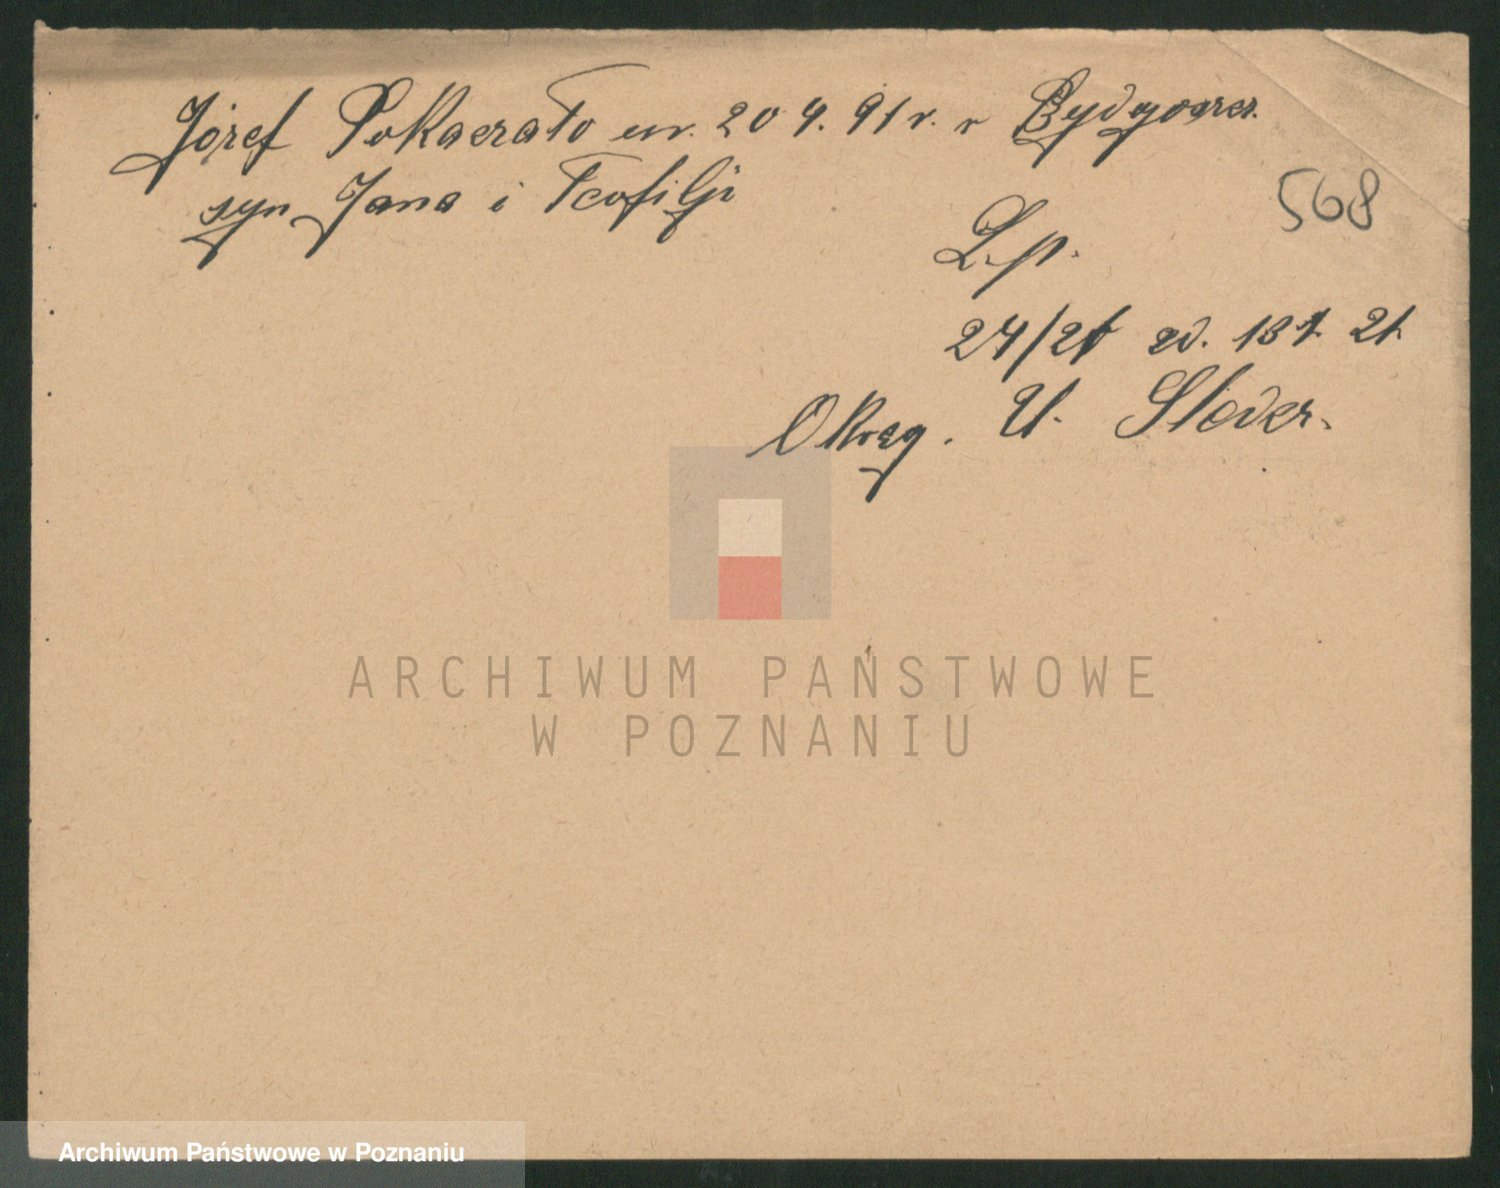 Józef Pokaczało ur. 20 4. 91 r. v Bydgoszcz.
syn Jana i Teofilji
568
L.p.
24/21 zd. 13 1. 21.
Okręg. U. Śledcz.
ARCHIWUM PAŃSTWOWE
W POZNANIU
Archiwum Państwowe w Poznaniu